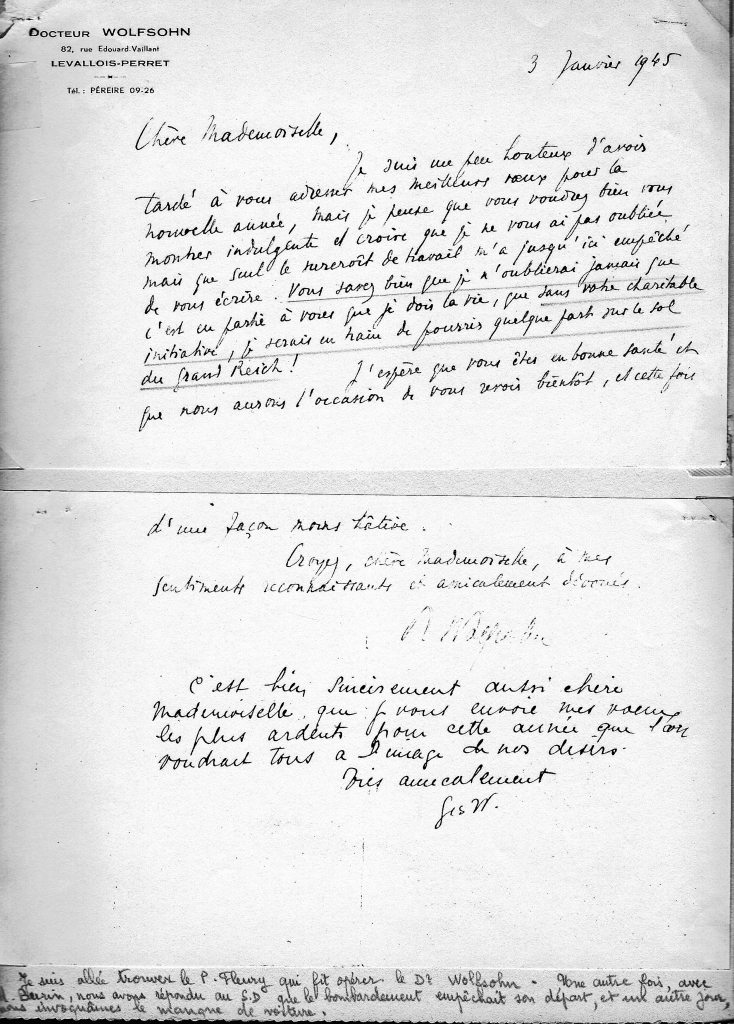 DOCTEUR WOLFSOHN
82, rue Edouard-Vaillant
LEVALLOIS-PERRET
Tél. : PÉREIRE 09-26
3 Janvier 1945
Chère Mademoiselle,
Je suis un peu honteux d'avoir
tardé à vous adresser mes meilleurs vœux pour la
nouvelle année, mais je pense que vous voudrez bien vous
montrer indulgente et croire que je ne vous ai pas oubliée,
mais que seul le surcroît de travail m'a jusqu'ici empêché
de vous écrire. Vous savez bien que je n'oublierai jamais que
c'est en partie à vous que je dois la vie, que sans votre charitable
initiative, je serais en train de pourrir quelque part sur le sol
du Grand Reich ! J'espère que vous êtes en bonne santé et
que nous aurons l'occasion de vous revoir bientôt, et cette fois
d'une façon moins hâtive.
Croyez, chère Mademoiselle, à mes
sentiments reconnaissants et amicalement dévoués.
C'est bien sincèrement aussi chère
Mademoiselle, que je vous envoie mes voeux
les plus ardents pour cette année que l'on
voudrait tous a l'image de nos désirs.
Très amicalement
Je suis allée trouver le P. Fleury qui fit opérer le Dr Wolfsohn. Une autre fois, avec
nous avons répondu au S.D que le bombardement empêchait son départ, et un autre jour,
nous invoquâmes le manque de voiture.